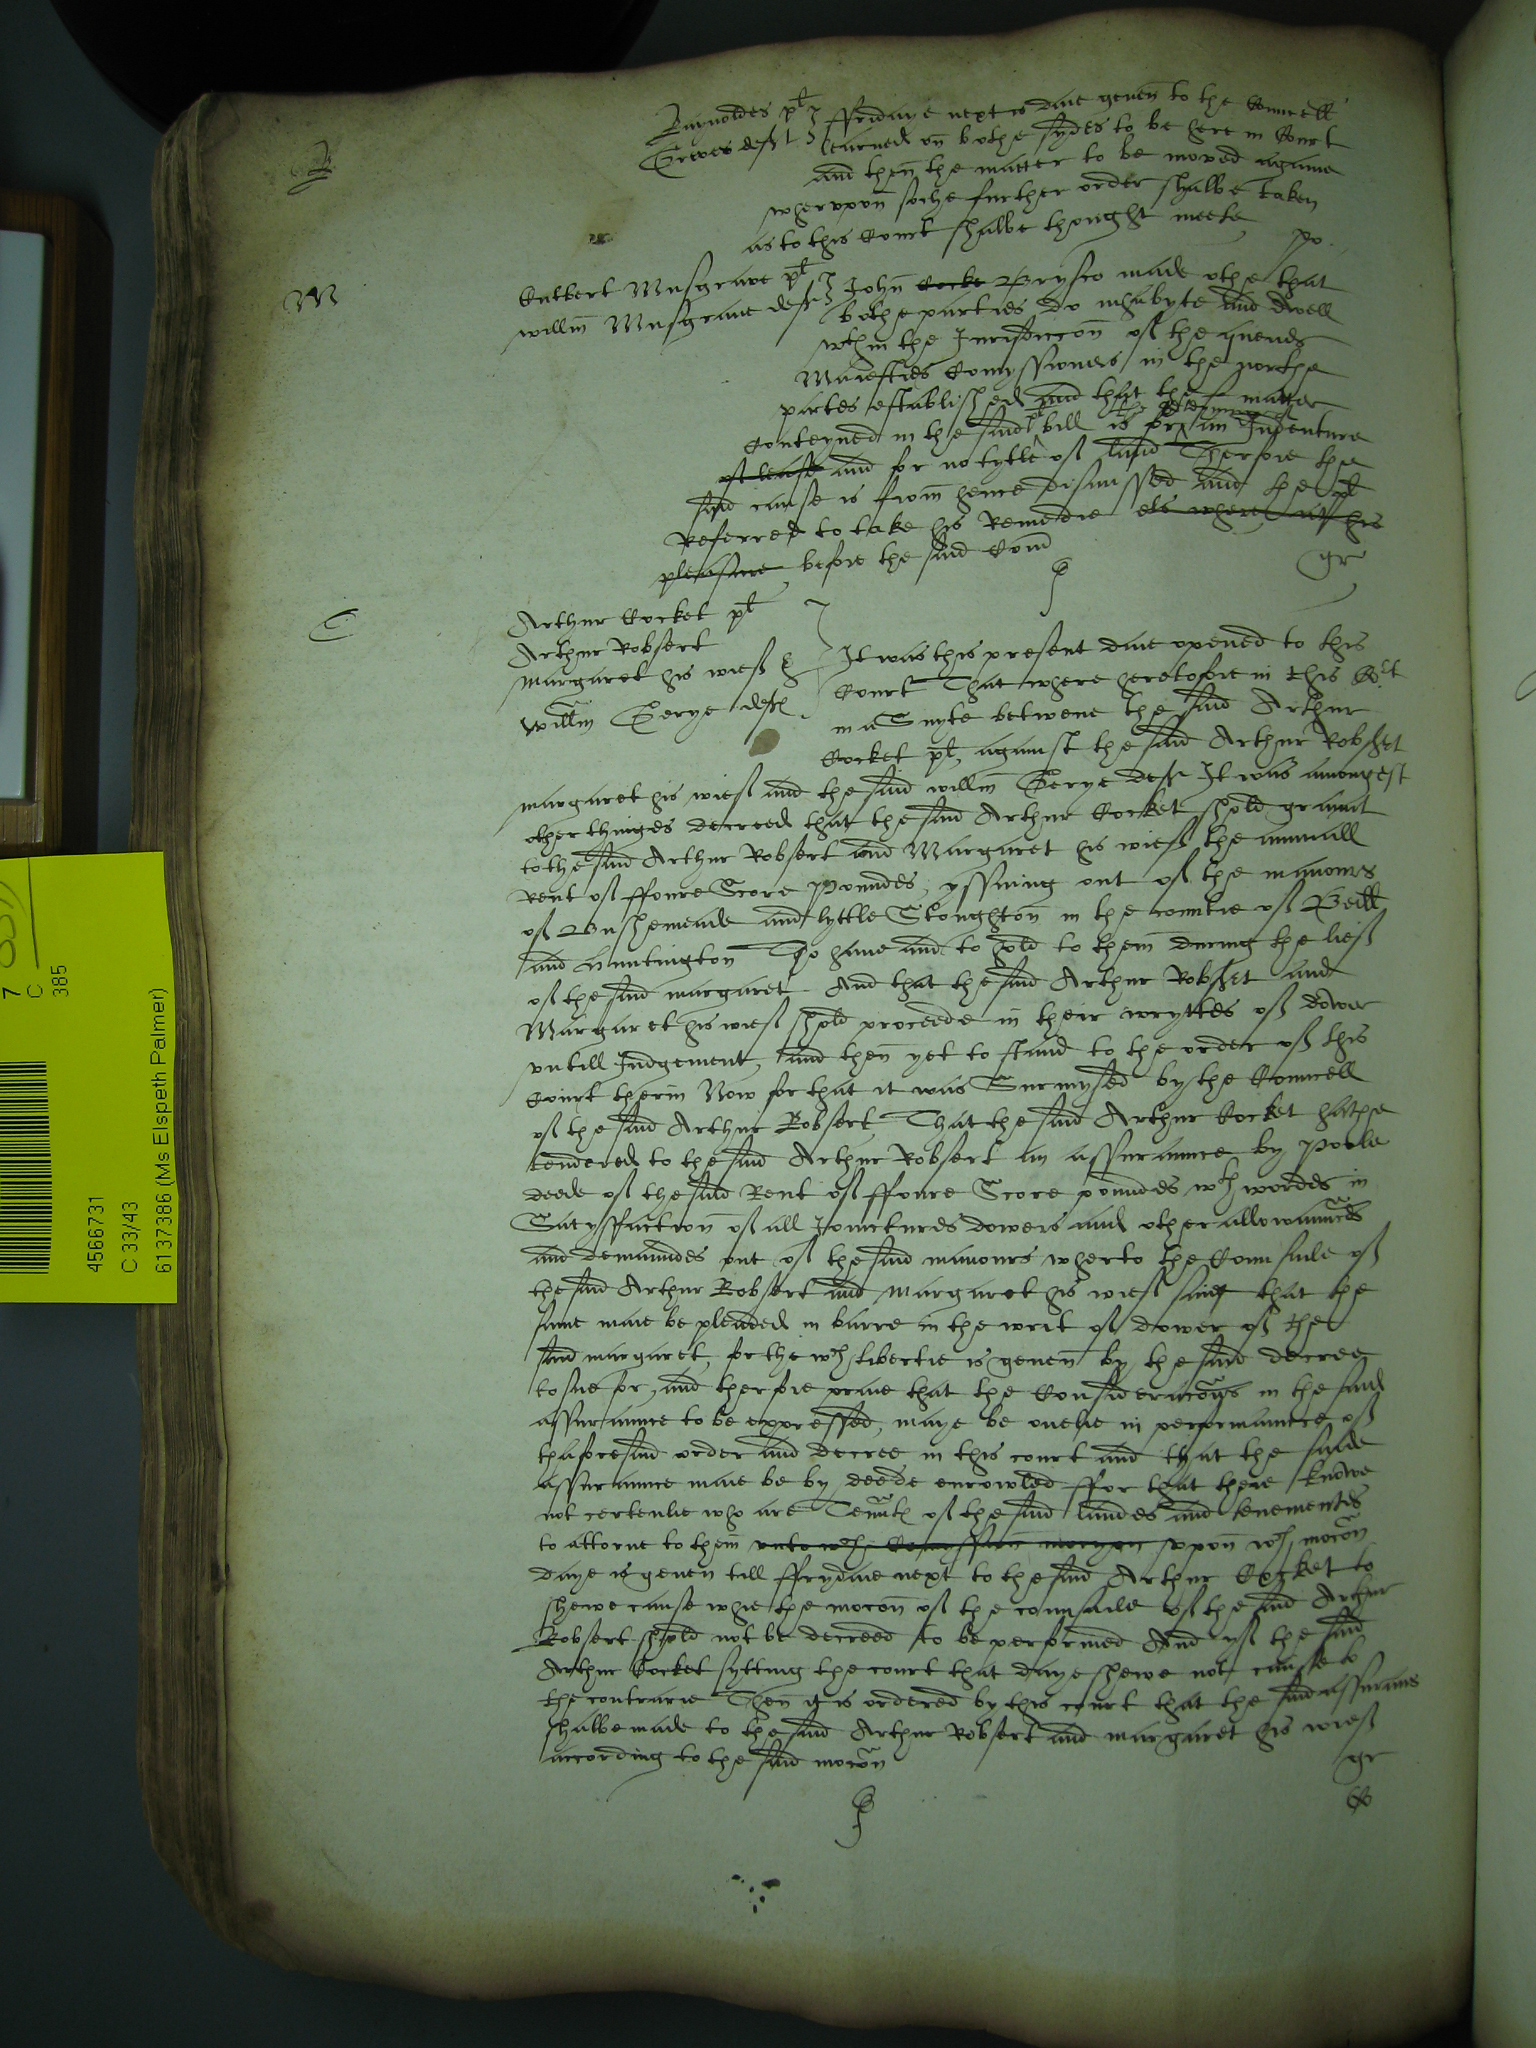 R
Raynoldes plt
Greves deft
ffridaye next is daie geuen to the Councell
learned on bothe sydes to be here in Court
and then the matter to be moved againe
wherupon soche further order shalbe taken
as to this Court shalbe thought meete
po
M
Cutbert Musgrave plt
willm Musgrave deft
John Cocke Brysco made othe that
bothe parties do inhabyte and dwell
wthin the Jurisdiccon of the quenes
Maiesties Comyssioners in the northe
partes established and that the matter
conteyned in the said bill is for an Indenture
of lease and for no tytle of land Therfore the
said cause is from hence dismissed and the plt
Referred to take his Remedie els where at his
pleasure before the said Com
gr
C
Arthur Cocket plt
Arthur Robsert
Margaret his wief &
Willm Gerye deftes
It was this present daie opened to this
Court That where heretofore in this Cort
in a Suyte betwene the said Arthur
Cocket plt, against the said Arthur Robsert
margaret his wief and the said willm Gerye deftes It was amongest
other thinges decreed that the said Arthur Cocket shold graunt
to the said Arthur Robsert and Margaret his wief the annuall
Rent of ffoure Score Poundes, yssuing out of the manours
of Bushemeade and lyttle Stoughton in the countie of Bedd
and Huntington To haue and to hold to them during the lief
of the said margaret And that the said Arthur Robsert and
Margaret his wief shold proceede in their wryttes of dower
vntill Judgement, and then yet to stand to the order of this
Court therin Now for that it was Surmysed by the Councell
of the said Arthur Robsert, That the said Arthur Cocket hathe
tendered to the said Arthur Robsert an assuraunce by Poole
deede of the said Rent of ffoure Score poundes wth wordes in
Satysfaction of all Joinctures dowers and other allowaunces
and demaundes out of the said manours wherto the Counsaile of
the said Arthur Robsert and Margaret his wief saiet that the
same maie be pleaded in barre in the writ of dower of the
said margaret, for the wch libertie is geuen by the said decree
to sue for, and therfore praie that the Consideracons in the said
assuraunce to be expressed, maye be onelie in performaunce of
thaforesaid order and decree in this court and that the saide
assuraunce maie be by deede enrowled ffor that theie knowe
not certenlie who are Tenntes of the said landes and tenementes
to attorne to them vpon wch mocon
daye is geuen till ffrydaie next to the said Arthur Cocket to
shewe cause whie the mocon of the counsaile of the said Arthur
Robsert shold not be decreed to be performed And yf the said
Arthur Cocket sytting the court that daye shewe not cause to
the contrarie Then it is ordered by this court that the said assurans
shalbe made to the said Arthur Robsert and margaret his wief
according to the said mocon
gr
7
C
385
4566731
C 33/43
6137386 (Ms Elspeth Palmer)